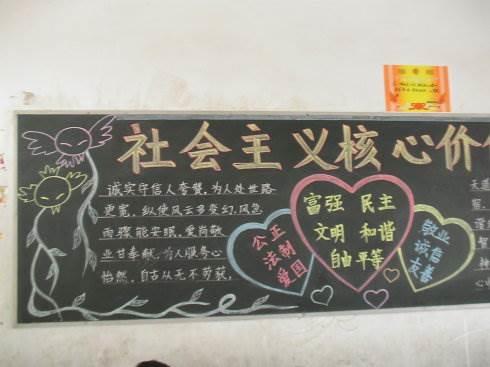 社会主义核心价
诚实守信人夸赞,为人处世路
更宽,纵使风云多变幻,风急
雨骤能安眠,爱岗敬
业甘奉献,为人服务心
怡然,自古从无不劳获,
公正
法制
爱国
富强 民主
文明 和谐
自由 平等
敬业
诚信
友善